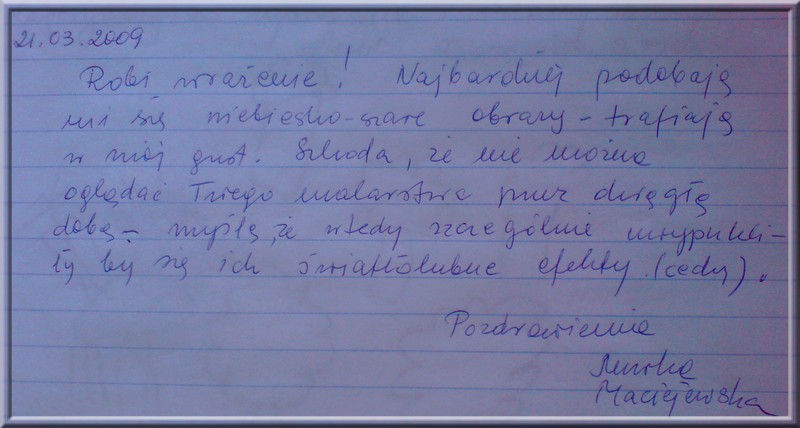 21.03.2009
Robi wrażenie! Najbardziej podobają
mi się niebiesko-szare obrazy - trafiają
w mój gust. Szkoda, że nie można
oglądać Twego malarstwa przez okrągłą
dobę - myślę, że wtedy szczególnie uwypukli-
ły by się ich światłolubne efekty (cechy).
Pozdrowienia
Maciejewska